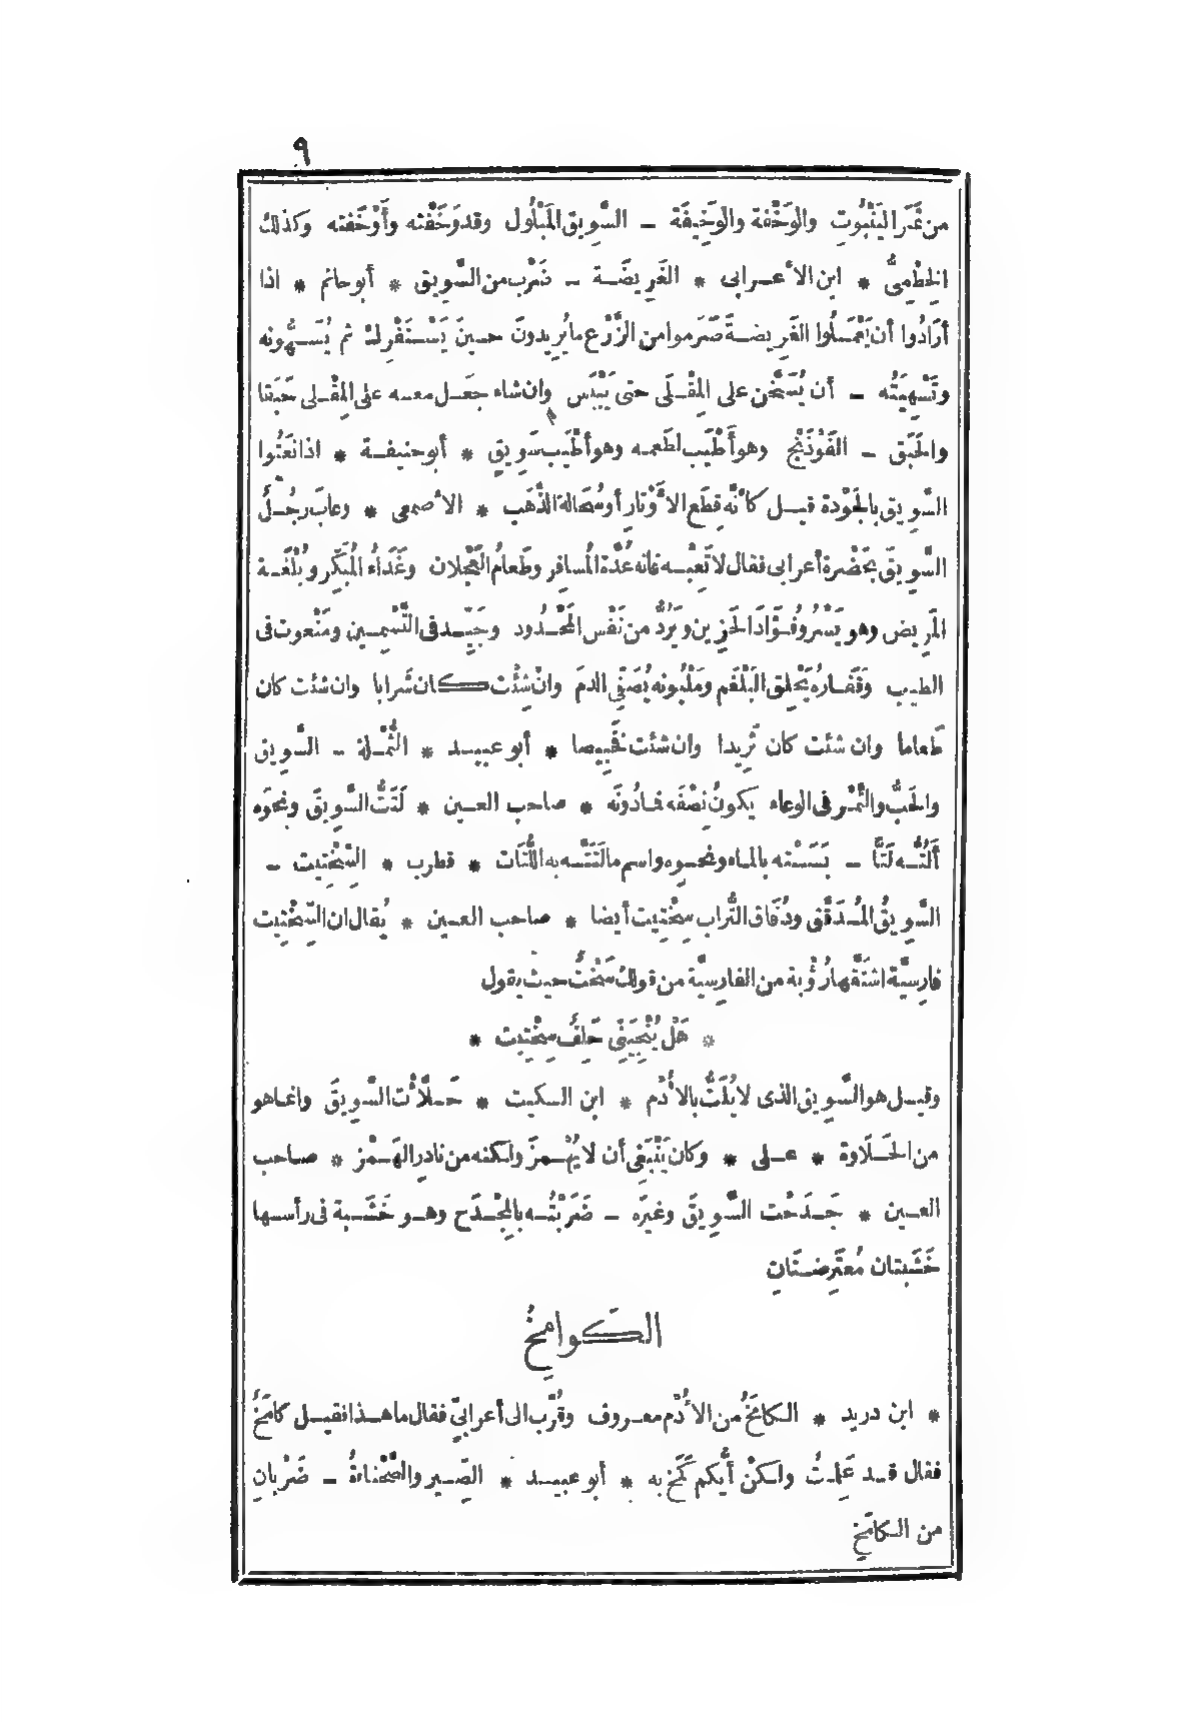 ٩
من ثَمَر اليَنْبُوتِ والوَخْفة والوَخِيفَة ـ السَّوِيق المَبْلُول وقد وَخَفْته وأَوْخَفته وكذلك
الخِطْمِىُّ * ابن الأعرابى * الغَرِيضَة ـ ضَرْب من السَّوِيق * أبو حاتم * اذا
أرَادُوا أن يَعْمَلُوا الغَرِيضةَ صَرَموا من الزَّرْع ما يُرِيدونَ حينَ يَسْتَفْرِك ثم يُسَهُّونه
وتَسْهِيَتُه ـ أن يُسَخَّن على المِقْلَى حتى يَيْبَس وان شاء جَعَل معه على المِقْلى حَبَقا
والحَبَق ـ الفَوْذَنْج وهو أَطْيَب لطَعمه وهو أَطْيَب سَوِيقٍ * أبو حنيفة * اذا نَعَتُوا
السَّوِيق بالجَوْدة قيل كأنَّه قِطَع الأَوْتارِ أو سُحَالة الذَّهَب * الأصمعى * وعابَ رجُلٌ
السَّوِيقَ بحَضْرة أعرابى فقال لا تَعِبْه فانه عُدَّة المُسافِر وطَعامُ العَجْلان وغَدَاءُ المُبَكِّر وبُلْغَة
المَرِيض وهو يَسْرُو فُؤَادَ الحَزِين ويَرُدُّ من نَفْس المَحْدُود وجَيِّد فى التَّسْمِين ومَنْعوت فى
الطيب وقَفَارُه يَحْلِق البَلْغَم ومَلْبُونه يُصَفِّى الدمَ وانْ شِئْت كان شَرابا وان شئت كان
طَعاما وان شئت كان ثَرِيدا وان شئت خَبِيصا * أبو عبيد * الثُّمْلة ـ السَّوِيق
والحَبُّ والتَّمْر فى الوعاء يكونُ نِصْفَه فما دُونَه * صاحب العين * لَتَتُّ السَّوِيقَ ونحوَه
أَلُتُّه لَتًّا ـ بَسَسْته بالماء ونحوِه واسم ما لَتَتَّه به اللُّتَات * قطرب * السِّخْتِيت ـ
السَّوِيقُ المُدَقَّق ودُقَاق التُّراب سِخْتِيت أيضا * صاحب العين * يُقال ان السِّخْتِيت
فارِسِيَّة اشتَقَّها رُؤْبة من الفارِسِيَّة من قولك سَخْتُ حيث يقول
* هَلْ يُنْجِيَنِّى حَلِفٌ سِخْتِيت *
وقيل هو السَّوِيق الذى لا يُلَتُّ بالأُدْم * ابن السكيت * حَلَّأْت السَّوِيقَ وانما هو
من الحَلَاوة * على * وكان يَنْبَغِى أن لا يُهْمزَ ولكنه من نادِر الهَمْز * صاحب
العين * جَدَحْت السَّوِيقَ وغيرَه ـ ضَرَبْتُه بالمِجْدَح وهو خَشَبة فى رأسها
خَشَبتان مُعتَرِضتَانِ
الكَوامِخُ
* ابن دريد * الكامَخُ من الأُدْم معروف وقُرِّب الى أعرابِىّ فقال ما هذا فقيل كامَخٌ
فقال قد عَلِمتُ ولكنْ أيُّكم كَمَخ به * أبو عبيد * الصِّير والصَّحْناةُ ـ ضَرْبانِ
من الكامَخِ